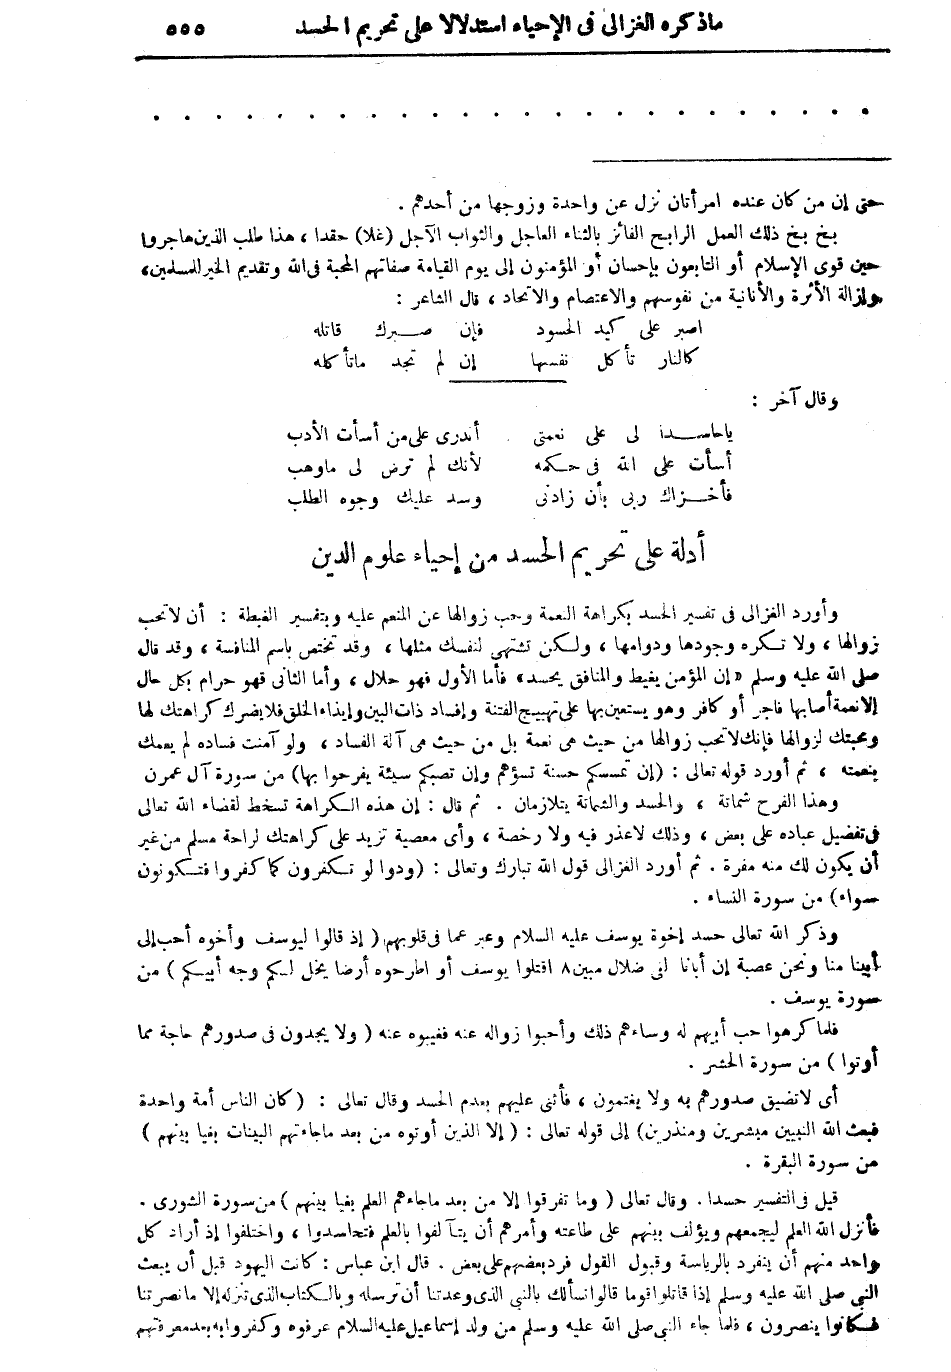 ماذكره الغزالى فى الإحياء استدلالا على تحريم الحسد ٥٥٥
حتى إن من كان عنده امرأتان نزل عن واحدة وزوجها من أحدهم .
بخ بخ ذلك العمل الرابح الفائز بالثناء العاجل والثواب الآجل (غلا) حقدا ، هذا طلب الذين هاجروا
حين قوى الإسلام أو التابعون بإحسان أو المؤمنون إلى يوم القيامة صفاتهم المحبة فى الله وتقديم الخير للمسلمين ،
وإزالة الأثرة والأنانية من نفوسهم والاعتصام والاتحاد ، قال الشاعر :
اصبر على كيد الحسود فإن صبرك قاتله
كالنار تأكل نفسها إن لم تجد ماتأكله
وقال آخر :
ياحاسدا لى على نعمتى أتدرى على من أسأت الأدب
أسأت على الله فى حكمه لأنك لم ترض لى ماوهب
فأخزاك ربى بأن زادنى وسد عليك وجوه الطلب
أدلة على تحريم الحسد من إحياء علوم الدين
وأورد الغزالى فى تفسير الحسد بكراهة النعمة وحب زوالها عن المنعم عليه وبتفسير الغبطة : أن لاتحب
زوالها ، ولا تكره وجودها ودوامها ، ولكن تشتهى لنفسك مثلها ، وقد تختص باسم المنافسة ، وقد قال
صلى الله عليه وسلم «إن المؤمن يغبط والمنافق يحسد» فأما الأول فهو حلال ، وأما الثانى فهو حرام بكل حال
إلا نعمة أصابها فاجر أو كافر وهو يستعين بها على تهييج الفتنة وإفساد ذات البين وإيذاء الخلق فلا يضرك كراهتك لها
ومحبتك لزوالها فإنك لاتحب زوالها من حيث هى نعمة بل من حيث هى آلة الفساد ، ولو آمنت فساده لم يغمك
بنعمته ، ثم أورد قوله تعالى : (إن تمسسكم حسنة تسؤهم وإن تصبكم سيئة يفرحوا بها) من سورة آل عمرن
وهذا الفرح شماتة ، والحسد والشماتة يتلازمان . ثم قال : إن هذه الكراهة تسخط لقضاء الله تعالى
فى تفضيل عباده على بعض ، وذلك لاعذر فيه ولا رخصة ، وأى معصية تزيد على كراهتك لراحة مسلم من غير
أن يكون لك منه مضرة . ثم أورد الغزالى قول الله تبارك وتعالى : (ودوا لو تكفرون كما كفروا فتكونون
سواء) من سورة النساء .
وذكر الله تعالى حسد إخوة يوسف عليه السلام وعبر عما فى قلوبهم ( إذ قالوا ليوسف وأخوه أحب إلى
أبينا منا ونحن عصبة إن أبانا لفى ضلال مبين ٨ اقتلوا يوسف أو اطرحوه أرضا يخل لكم وجه أبيكم ) من
سورة يوسف .
فلما كرهوا حب أبيهم له وساءهم ذلك وأحبوا زواله عنه فغيبوه عنه ( ولا يجدون فى صدورهم حاجة مما
أوتوا ) من سورة الحشر .
أى لاتضيق صدورهم به ولا يغتمون ، فأثنى عليهم بعدم الحسد وقال تعالى : (كان الناس أمة واحدة
فبعث الله النبيين مبشرين ومنذرين) إلى قوله تعالى : ( إلا الذين أوتوه من بعد ماجاءتهم البينات بغيا بينهم )
من سورة البقرة .
قيل فى التفسير حسدا . وقال تعالى ( وما تفرقوا إلا من بعد ماجاءهم العلم بغيا بينهم ) من سورة الشورى .
فأنزل الله العلم ليجمعهم ويؤلف بينهم على طاعته وأمرهم أن يتآلفوا بالعلم فتحاسدوا ، واختلفوا إذ أراد كل
واحد منهم أن ينفرد بالرياسة وقبول القول فرد بعضهم على بعض . قال ابن عباس : كانت اليهود قبل أن يبعث
النبى صلى الله عليه وسلم إذا قاتلوا قوما قالوا نسألك بالنبى الذى وعدتنا أن ترسله وبالكتاب الذى تنزله إلا مانصرتنا
فكانوا ينصرون ، فلما جاء النبى صلى الله عليه وسلم من ولد إسماعيل عليه السلام عرفوه وكفروا به بعد معرفتهم